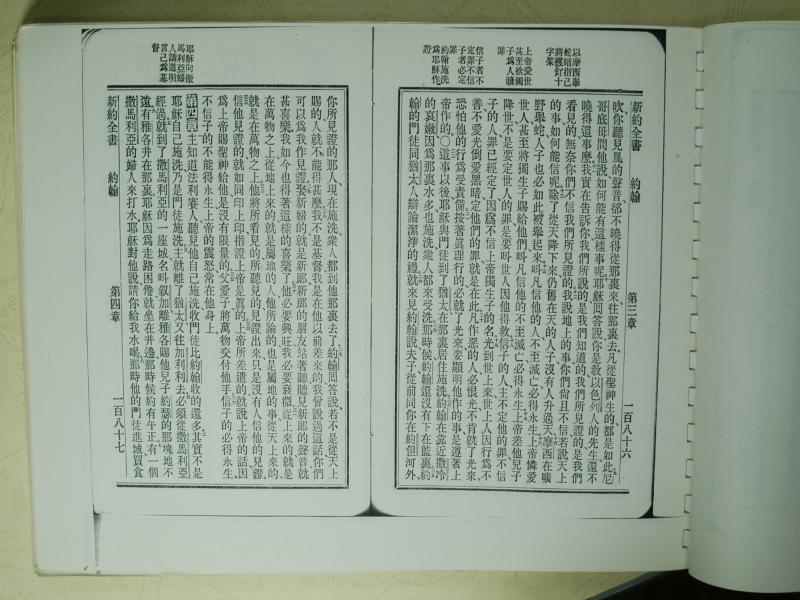 以摩西舉
蛇暗指己
將被釘十
字架
上帝愛世
甚至捨獨
子爲人贖
罪
信子者不
定罪不信
子者必定
罪
約翰施洗
爲耶穌作
證
新約全書　約翰　第三章　一百八十六
吹你聽見風的聲音卻不曉得從那裏來往那裏去凡從聖神生的都是如此尼
哥底母問他說如何能有這樣事呢耶穌回答說你是敎以色列人的先生還不
曉得這事麼我實在告訴你我們所說的是我們知道的我們所見證的是我們
看見的無奈你們不信我們所見證的我說地上的事你們尙且不信若說天上
的事如何能信呢除了從天降下來仍舊在天的人子沒有人升過天摩西在曠
野舉蛇人子也必如此被舉起來叫凡信他的不至滅亡必得永生上帝憐愛
世人甚至將獨生子賜給他們叫凡信他的不至滅亡必得永生上帝差他兒子
降世不是要定世人的罪是要叫世人因他得救信子的人主不定他的罪不信
的人罪已經定了因爲不信上帝獨生子的名光到世上來世上人因行爲不
善不愛光倒愛黑暗定他們的罪就是在此凡作惡的人必恨光不肯就了光來
恐怕他的行爲受責備按著眞理行的必就了光來要顯明他作的事是遵著上
帝作的〇這事以後耶穌與門徒到了猶太在那裏居住施洗約翰在靠近撒冷
的哀嫩因爲那裏水多也施洗衆人都來受洗那時候約翰還沒有下在監裏約
翰的門徒同猶太人辯論潔淨的禮就來見約翰說夫子從前同你在約但河外
耶穌向撒
馬利亞婦
人講道明
言己爲基
督
新約全書　約翰　第四章　一百八十七
你所見證的那人現在施洗衆人都到他那裏去了約翰回答說若不是從天上
賜的人就不能得甚麼我不是基督我是在他以前差來的我曾說過這話你們
可以爲我作見證娶新婦的就是新郎新郎的朋友站著聽聽見新郎的聲音就
甚喜樂我如今也得著這樣的喜樂了他必要興旺我必要衰微從上來的就是
在萬物之上從地上來的就是屬地的人他所論的也是屬地的事從天上來的
就是在萬物之上他將所看見的所聽見的見證出來只是沒有人信他的見證
信他見證的就如同印上印指證上帝是眞的上帝所差遣的就說上帝的話因
爲上帝賜聖神給他是沒有限量的父愛子將萬物交付他手信子的必得永生
不信子的不能得永生上帝的震怒常在他身上
第四章主知道法利賽人聽見他自己施洗收門徒比約翰收的還多其實不是
耶穌自己施洗乃是門徒施洗主就離了猶太又往加利利去必須從撒馬利亞
經過就到了撒馬利亞的一座城名叫叙加離雅各賜他兒子約瑟的那塊地不
遠有雅各井在那裏耶穌因爲走路困倦就坐在井邊那時候約有午正有一個
撒馬利亞的婦人來打水耶穌對他說請你給我水喝那時他的門徒進城買食